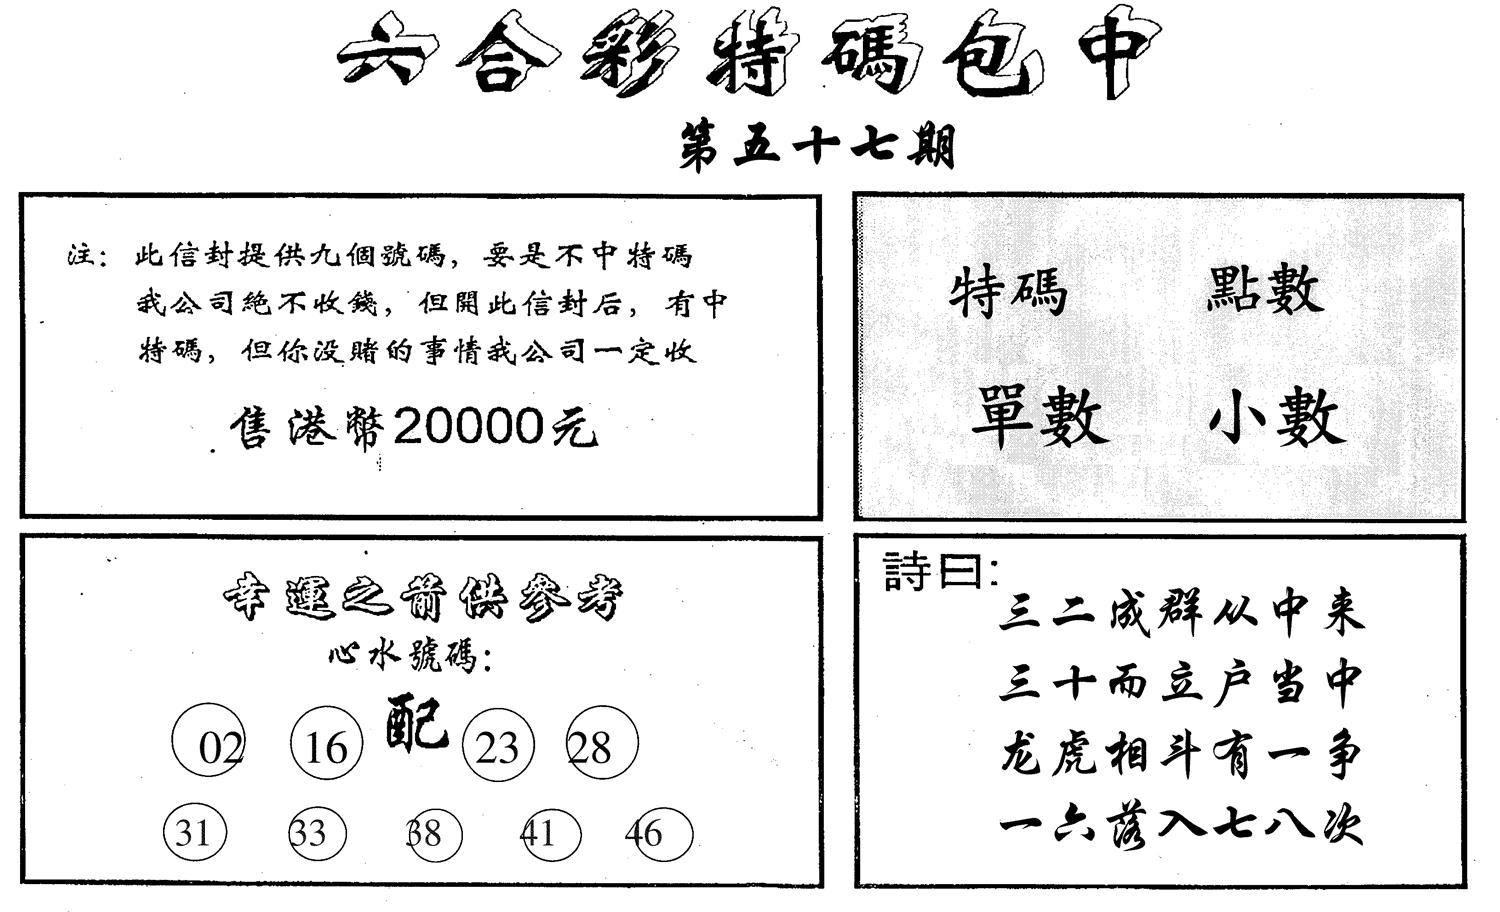 六合彩特碼包中
第五十七期
注：此信封提供九個號碼，要是不中特碼
我公司絕不收錢，但開此信封后，有中
特碼，但你没賭的事情我公司一定收
售港幣20000元
特碼 點數
單數 小數
幸運之箭供參考
心水號碼：
02 16 配 23 28
31 33 38 41 46
詩曰：
三二成群从中来
三十而立户当中
龙虎相斗有一争
一六落入七八次